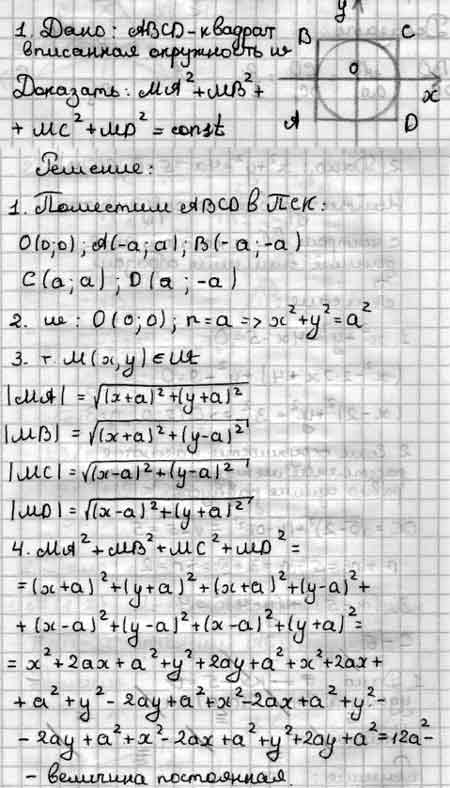 1. Дано: ABCD-квадрат
вписанная окружность ω
Доказать: MA²+MB²+
+ MC²+MD² = const
y
B
C
O
x
A
D
Решение:
1. Поместим ABCD в ПСК:
O(0;0); A(-a;a); B(-a;-a)
C(a;a); D(a;-a)
2. ω: O(0;0); r=a => x²+y²=a²
3. т. M(x,y) ∈ ω
|MA| = √(x+a)²+(y+a)²
|MB| = √(x+a)²+(y-a)²
|MC| = √(x-a)²+(y-a)²
|MD| = √(x-a)²+(y+a)²
4. MA²+MB²+MC²+MD² =
=(x+a)²+(y+a)²+(x+a)²+(y-a)²+
+(x-a)²+(y-a)²+(x-a)²+(y+a)²=
= x²+2ax+a²+y²+2ay+a²+x²+2ax+
+a²+y²-2ay+a²+x²-2ax+a²+y²-
-2ay+a²+x²-2ax+a²+y²+2ay+a²=12a²-
- величина постоянная.